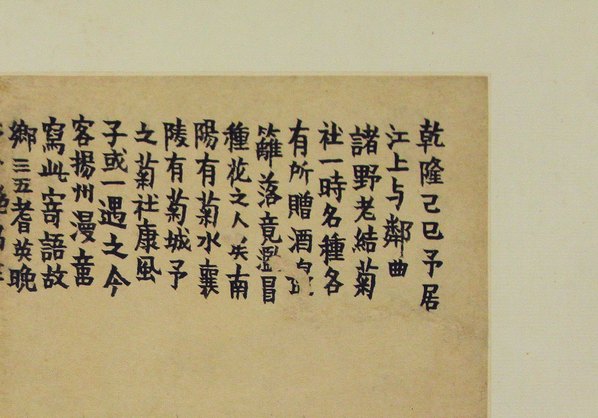 乾隆己巳予居
江上与鄰曲
諸野老結菊
社一時名種各
有所贈酒
籬落竟冒
種花之人矣南
陽有菊水襄
陵有菊城予
之菊社康風
子或一遇之今
客揚州漫畫
寫此寄語故
鄉三五耆英晚